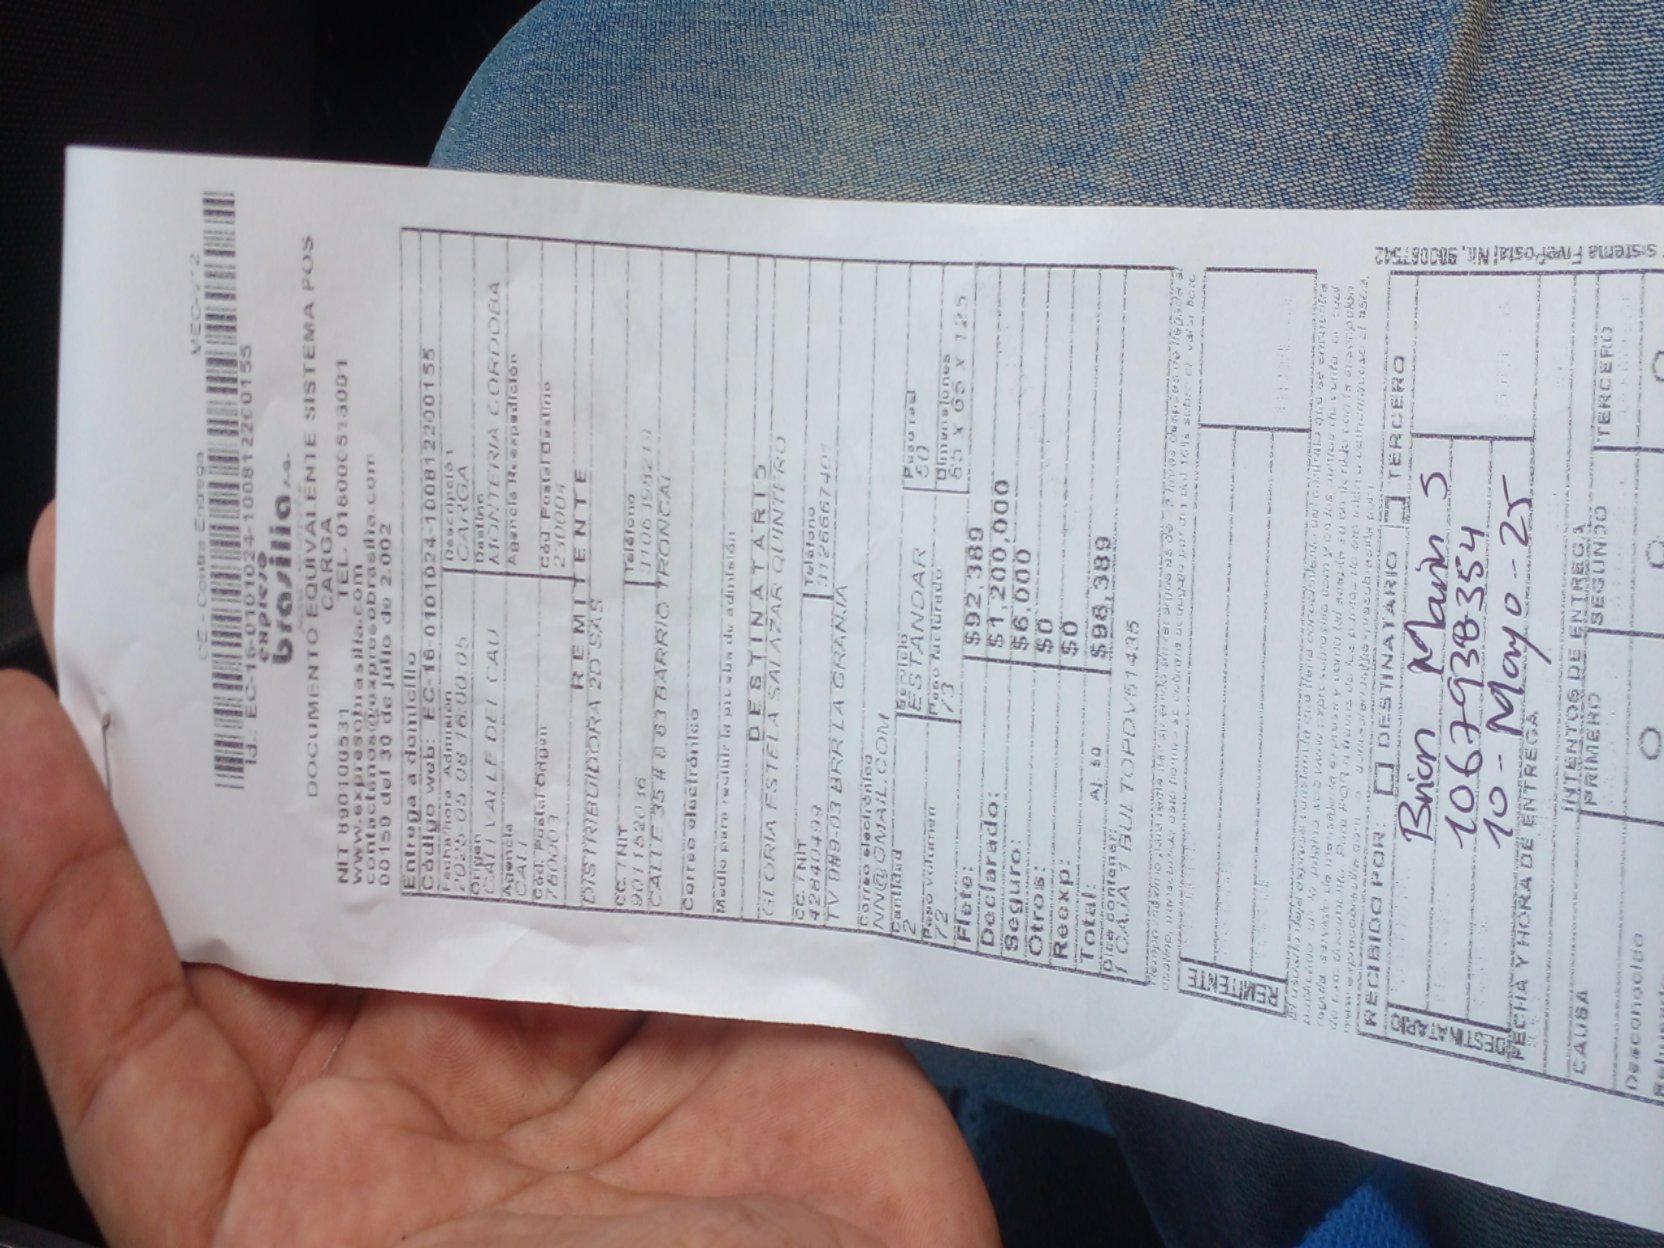 CE - Contra Entrega
Id.: EC-16-0101024-1008122C0155
expreso
brasilia s.a.
DOCUMENTO EQUIVALENTE SISTEMA POS
CARGA
NIT 890100531 TEL. 018000513001
www.expresobrasilia.com
contactenos@expresobrasilia.com
00159 del 30 de julio de 2.002
Entrega a domicilio
Código web: EC-16-0101024-1008122C0155
Fecha/hora Admisión
2025-05-08 16:00:05
Descripción
CARGA
Origen
CALI VALLE DEL CAU
Destino
MONTERIA CORDOBA
Agencia
CALI
Agencia Reexpedición
Cód. Postal Origen
760003
Cód Postal Destino
230004
REMITENTE
DISTRIBUIDORA 2D SAS
CC. / NIT
901152036
Teléfono
CALLE 35 # 8 63 BARRIO TRONCAL
Correo electrónico
Medio para recibir la prueba de admisión
DESTINATARIO
GLORIA ESTELA SALAZAR QUINTERO
CC. / NIT
42840499
Teléfono
3126667401
TV 9#9-03 BRR LA GRANJA
Correo electrónico
NN@GMAIL.COM
Cantidad
2
Servicio
ESTANDAR
Peso real
50
Peso volumen
72
Peso facturado
73
Dimensiones
65 x 65 x 125
Flete: $92,389
Declarado: $1,200,000
Seguro: $6,000
Otros: $0
Reexp: $0
Total: Aj. $0 $98,389
Dice contener:
1 CAJA 1 BULTOPDV51435
REMITENTE
RECIBIDO POR: DESTINATARIO TERCERO
DESTINATARIO
Brian Marin S
1067938354
10 - Mayo - 25
FECHA Y HORA DE ENTREGA
INTENTOS DE ENTREGA
CAUSA PRIMERO SEGUNDO TERCERO
Desconocido
Sistema FivePostal Nit. 900087542